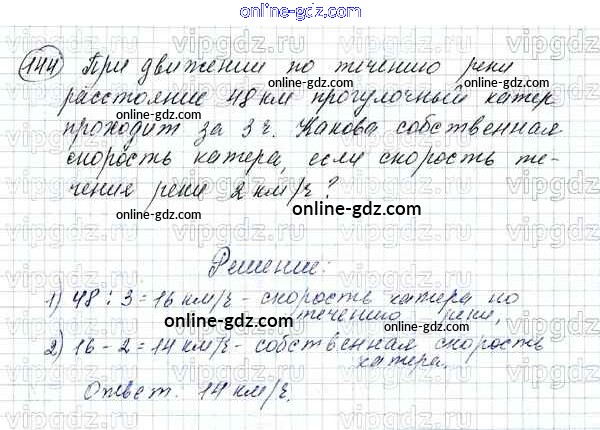 online-gdz.com
144 При движении по течению реки
online-gdz.com
расстояние 48 км прогулочный катер
online-gdz.com
проходит за 3 ч. Какова собственная
скорость катера, если скорость те-
online-gdz.com
чения реки 2 км/ч?
online-gdz.com
online-gdz.com
Решение:
1) 48 : 3 = 16 км/ч - скорость катера по
течению реки,
online-gdz.com
2) 16 - 2 = 14 км/ч - собственная скорость
катера.
online-gdz.com
Ответ: 14 км/ч.
online-gdz.com